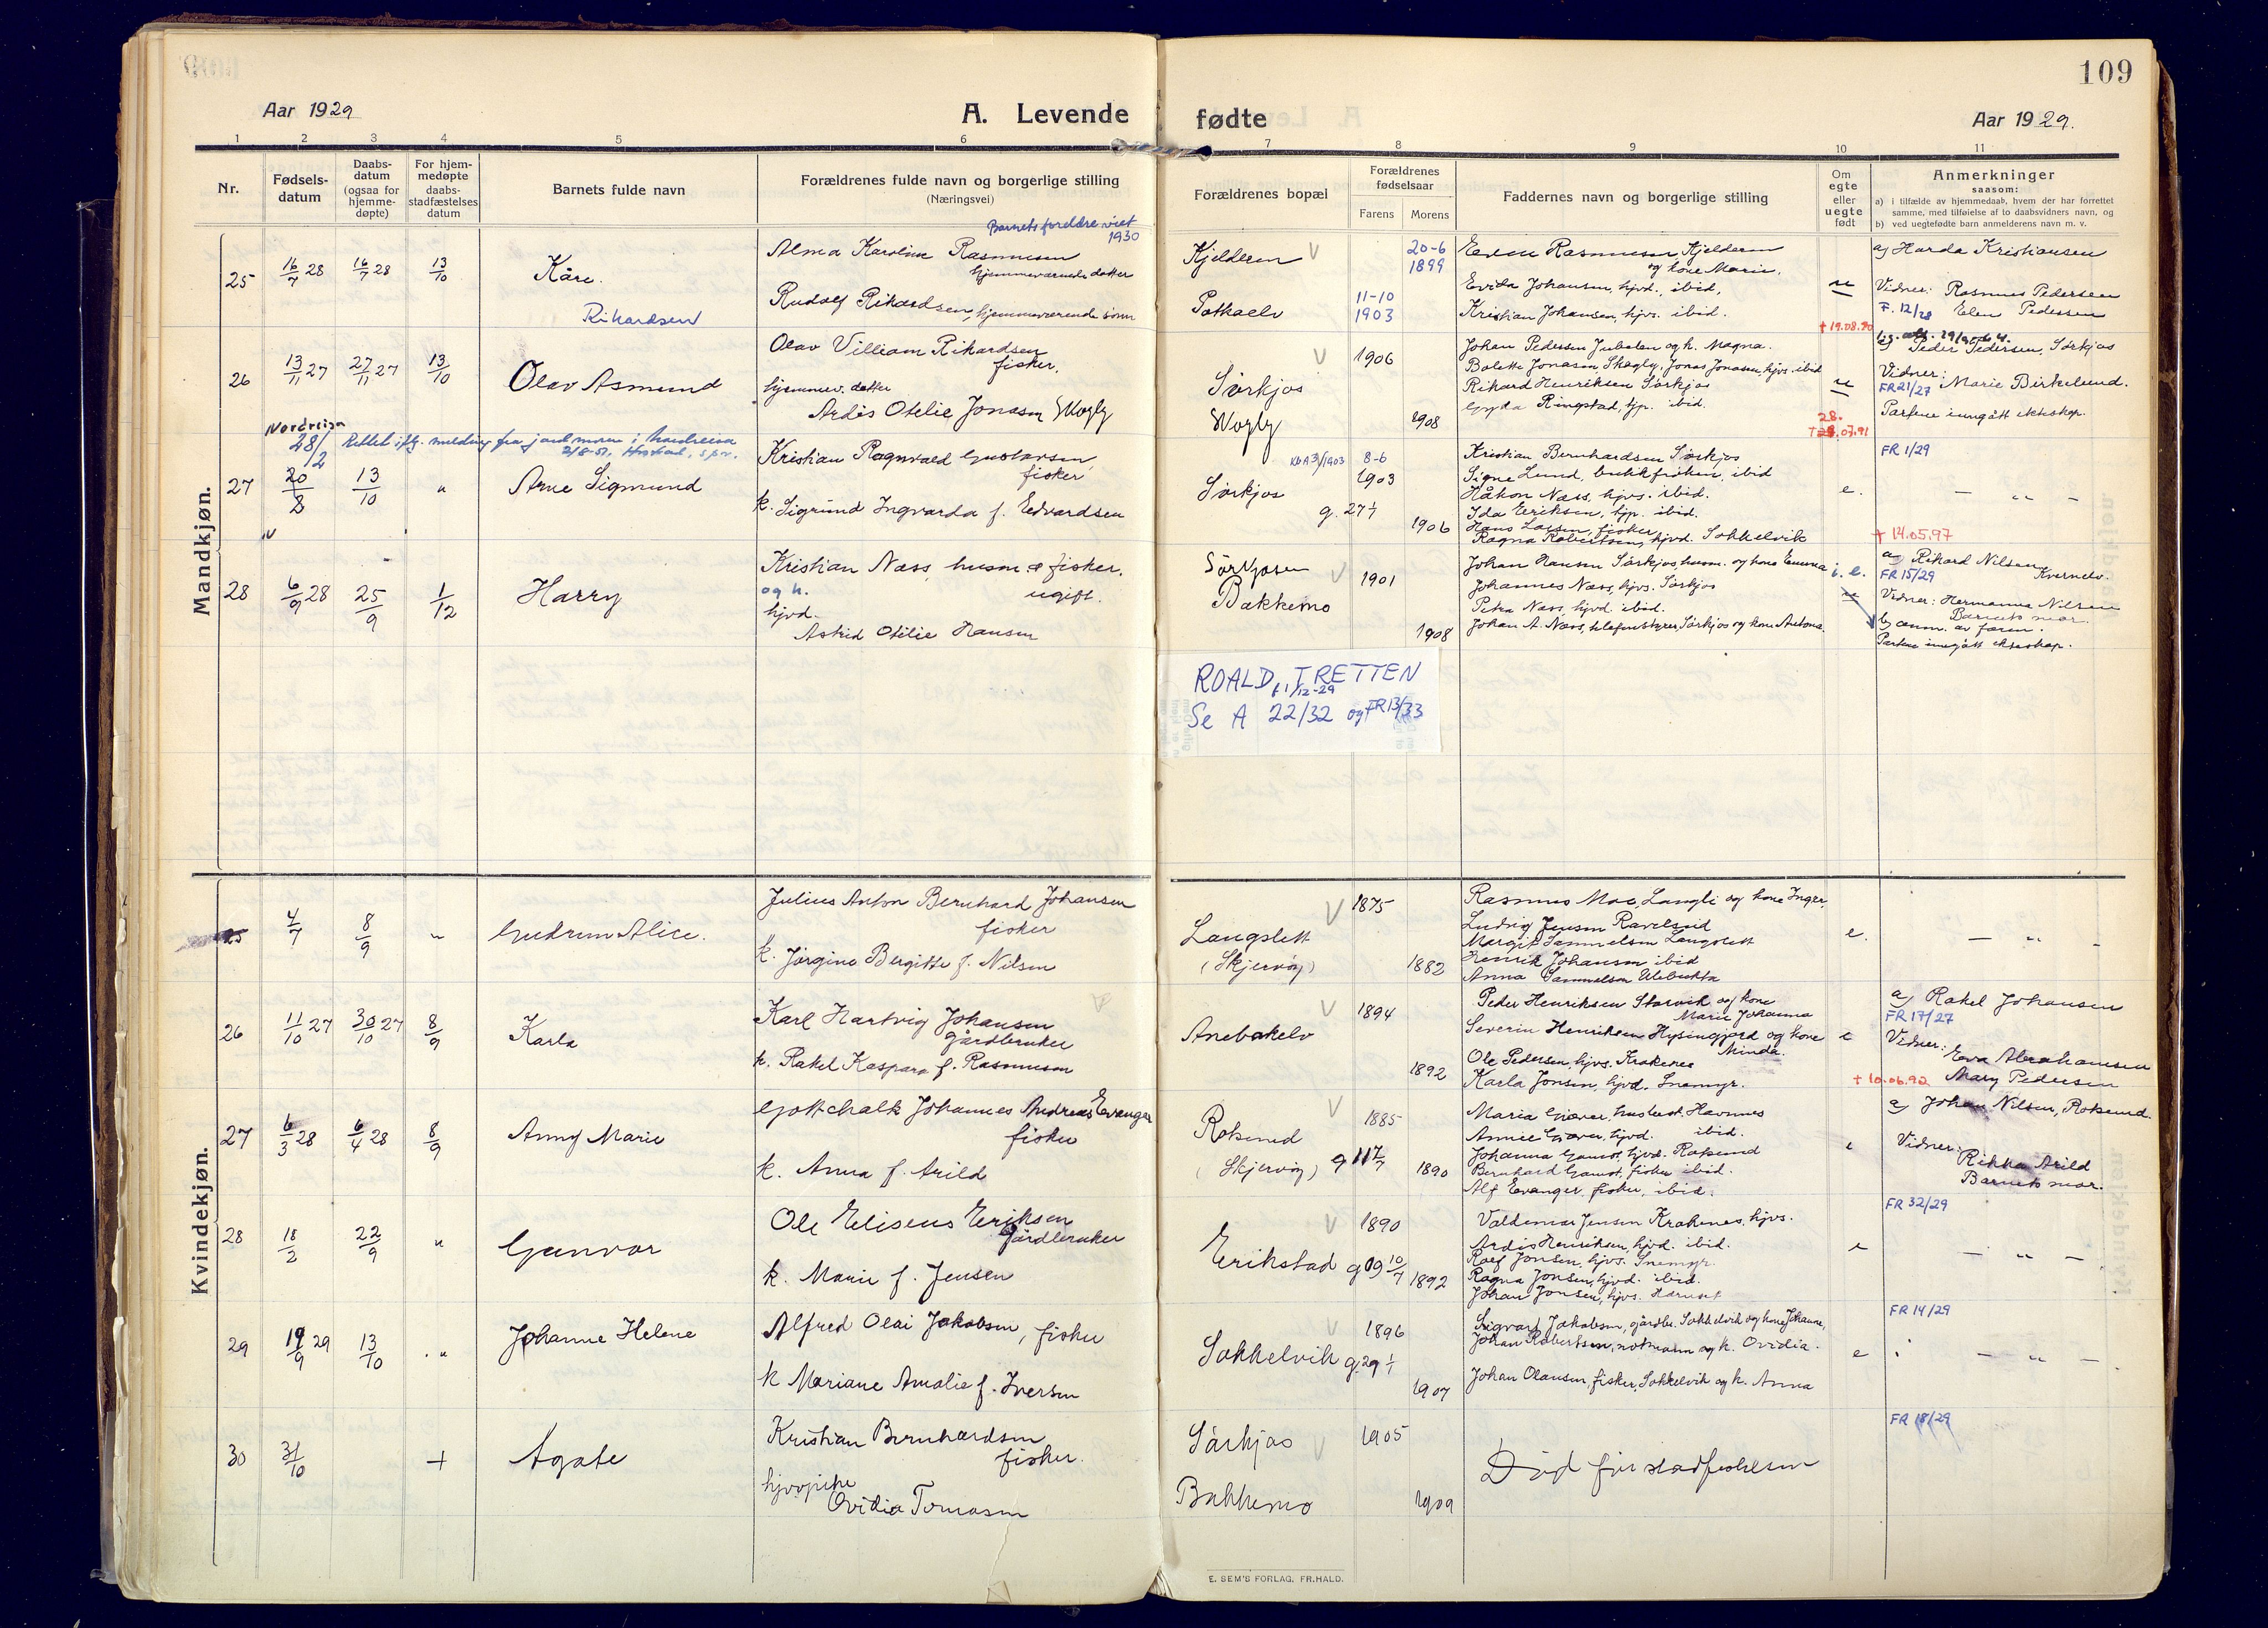 109
Aar 1929
A. Levende
fødte
Aar 1929.
1 2 3 4 5 6 7 8 9 10 11
Nr.
Fødsels-
datum
Daabs-
datum
(ogsaa for
hjemme-
døpte)
For hjem-
medøpte
daabs-
stadfæstelses
datum
Barnets fulde navn
Forældrenes fulde navn og borgerlige stilling
(Næringsvei)
Forældrenes bopæl
Forældrenes
fødselsaar
Farens Morens
Faddernes navn og borgerlige stilling
Om
egte
eller
uegte
født
Anmerkninger
saasom:
a) i tilfælde av hjemmedaab, hvem der har forrettet
samme, med tilføielse af to daabsvidners navn, og
b) ved uegtefødte barn anmelderens navn m. v.
Mandkjøn.
Barnets foreldre viet
1930
25 16/7 28 16/7 28 13/10 Kåre.
Rikardsen
Alma Karoline Rasmussen
hjemmeværende datter
Rudolf Rikardsen, hjemmeværende sønn
Kjelderen
20-6
1899
11-10
1903
Edvin Rasmussen Kjelderen
og kone Marie.
Evida Johansen, hjvd., ibid,
Kristian Johansen, hjvs. ibid.
u
a) Harda Kristiansen
Vidner: Rasmus Pedersen
F. 12/28 Elen Pedersen
† 19.08.90
26 13/11 27 27/11 27 13/10 Olav Asmund
Olav Villiam Rikardsen
fisker.
hjemmev. datter
Ardis Otelie Jonassen Skogly
Sørkjos
Skogly
1906
1908
Johan Pedersen Jubelen og h. Magna.
Bolette Jonassen, Skogly. Jonas Jonassen, hjvs. ibid
Rikard Henriksen Sørkjos
Gyda Ringstad, hjp. ibid.
u
28.
† 28.07.91
Peder Pedersen, Sørkjos
Vidner:
FR 21/27 Marie Birkelund.
Partene inngått ekteskap.
Nordreisa
28/2 Rettet iflg. melding fra jordmoren i Nordreisa
27 20/8 13/10 " Arne Sigmund
Kristian Ragnvald Gustavsen
fisker
k. Sigrund Ingvarda f. Edvardsen
Sørkjos
g. 27 1/1
8-6
1903
1906
Kristian Bernhardsen Sørkjos
Signe Lund, butikfrøken, ibid
Håkon Næss, hjvs. ibid.
Ida Eriksen, hjp. ibid.
Hans Larsen, fisker
Ragna Robertsen, hjvd. Sokkelvik
e.
FR 1/29
— " —
† 14.05.97
28 6/9 28 25/9 1/12 Harry
Kristian Næss, husm. & fisker.
og h. ugift.
hjvd.
Astrid Otilie Hansen
Sørkjosen
Bakkemo
1901
1908
Johan Hansen Sørkjos, husm. og kone Emma
Johannes Næss, hjvs. Sørkjos
Petra Næss, hjvd. ibid.
Johan A. Næss, telefonstyrer, Sørkjos og kone Antona.
a) Rikard Nilsen
FR 15/29 Kvernelv.
Vidner: Hermanna Nilsen
Barnets mor.
b) anm. av faren.
Partene inngått ekteskap.
ROALD TRETTEN
f 1/12-29
Se A 22/32 og FR 13/33
Kvindekjøn.
25 4/7 8/9 " Gudrun Alice.
Julius Anton Bernhard Johansen
fisker
k. Jørgine Bergitte f. Nilsen
Langslett
(Skjervøy)
1875
1882
Rasmus Moe, Langli og kone Inger.
Ludvig Jensen Ravelseid
Margit Samuelsen Langslett
Henrik Johansen ibid
Anna Samuelsen Ulebukta
e.
— " —
26 11/10 27 30/10 27 8/9 Karla
Karl Hartvig Johansen
gårdbruker
k. Rakel Kaspara f. Rasmussen
Anebakelv
1894
1892
Peder Henriksen Storvik og kone
Marie Johanna
Severin Henriksen Hysingjord og kone
Minda.
Ole Pedersen, hjvs. Krakenes
Karla Jonsen, hjvd. Snemyr.
e
a) Rakel Johansen
FR 17/27
Vidner:
Eva Abrahamsen
Mary Pedersen
† 10.06.92
27 6/3 28 6/4 28 8/9 Anny Marie
Gottschalk Johannes Andreas Evanger
fisker
k. Anna f. Arild
Rotsund
(Skjervøy)
1885
1890
Maria Giæver, husbest. Havnnes
Annie Giæver, hjvd. ibid.
Johanna Gamst, hjvd. Rotsund
Bernhard Gamst, fisker ibid.
Alf Evanger, fisker, ibid.
e
a) Johan Nilsen, Rotsund.
Vidner:
Rikka Arild
Barnets mor.
28 18/2 22/9 " Gunvor
Ole Eliseus Eriksen
gårdbruker
k. Marie f. Jensen
Erikstad g 09 10/7
1890
1892
Valdemar Jensen Krakenes, hjvs.
Ardis Henriksen, hjvd. ibid.
Rolf Jonsen, hjvs. Snemyr.
Ragna Jonsen, hjvd. ibid.
Johan Jonsen, hjvs.
e
FR 32/29
— " —
29 19/9 29 13/10 " Johanne Helene
Alfred Olai Jakobsen, fisker
k Mariane Amalie f. Iversen
Sokkelvik g. 29 1/1
1896
1907
Sigvart Jakobsen, gårdbr. Sokkelvik og kone Johanne,
Johan Robertsen, notmann og k. Ovidia.
Johan Olausen, fisker, Sokkelvik og k. Anna
e
FR 14/29
— " —
30 31/10 + Agate
Kristian Bernhardsen
fisker.
hjvpike
Ovidia Tomassen
Sørkjos
Bakkemo
1905
1909
Død før stadfestelsen
FR 18/29
E. SEM'S FORLAG. FR.HALD.